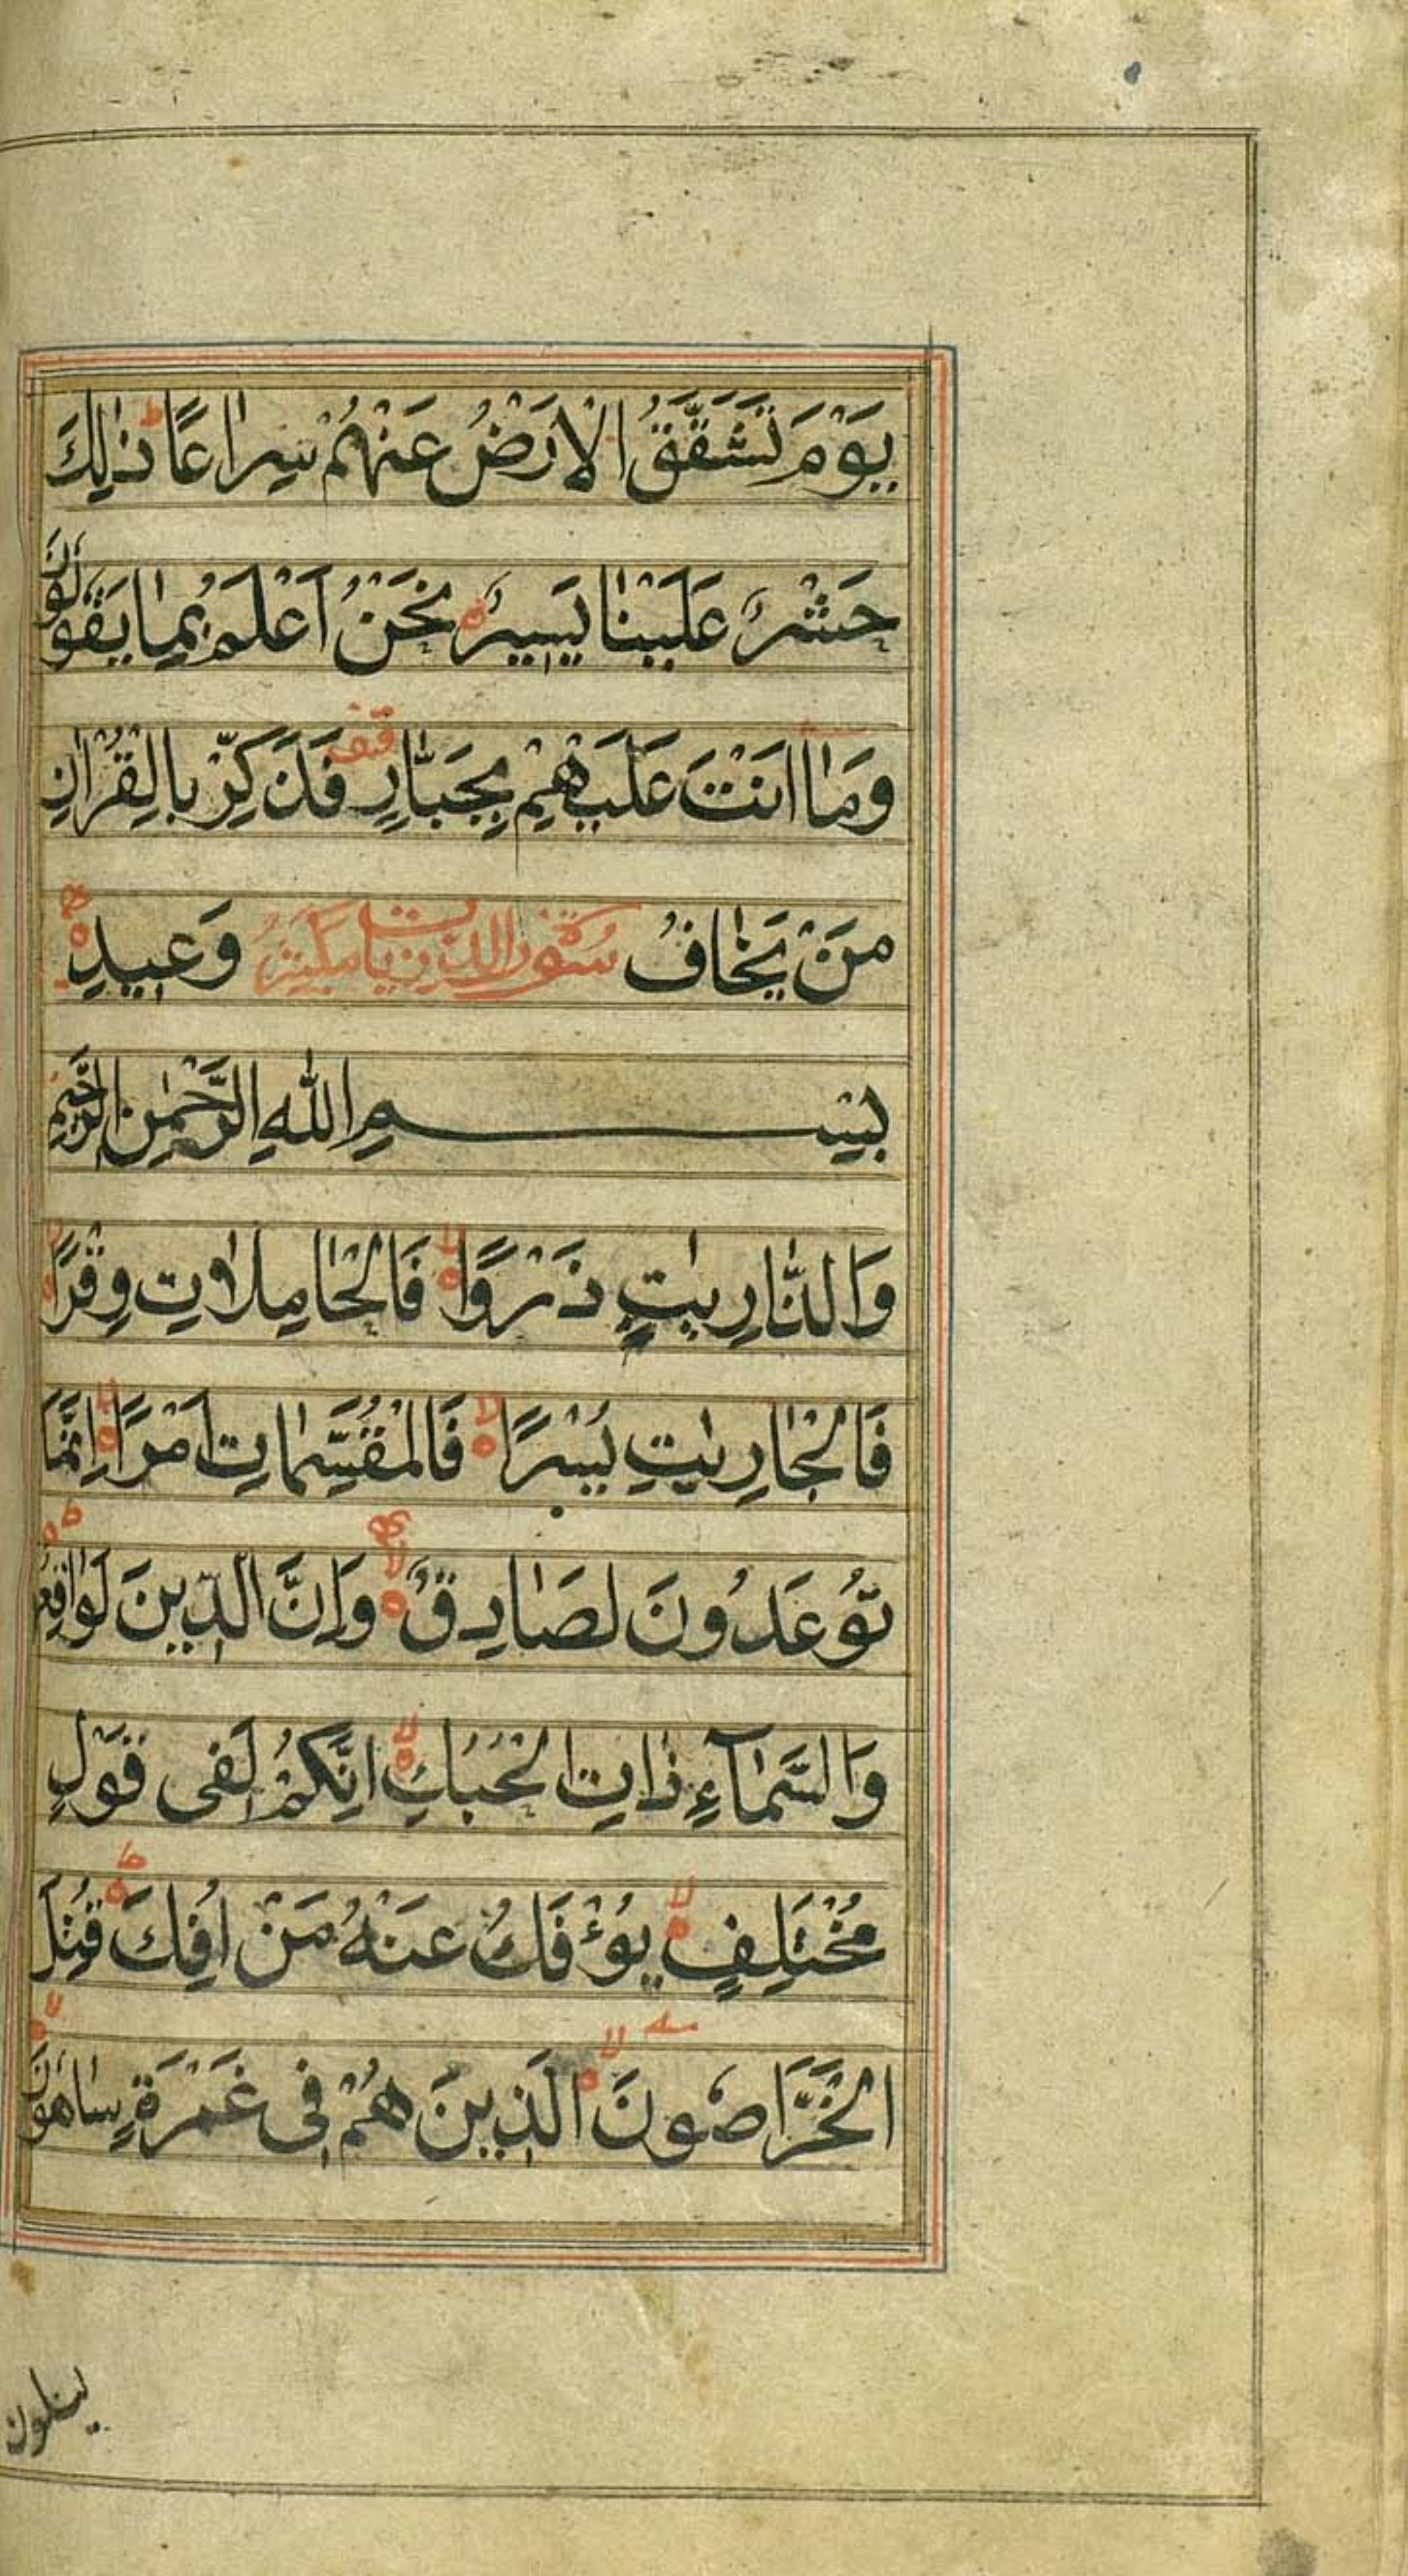 يَوْمَ تَشَقَّقُ الْاَرْضُ عَنْهُمْ سِرَاعًا ط ذٰلِكَ
حَشْرٌ عَلَيْنَا يَسِيرٌ ه نَحْنُ اَعْلَمُ بِمَا يَقُولُونَ
وَمَا اَنْتَ عَلَيْهِمْ بِجَبَّارٍ قف فَذَكِّرْ بِالْقُرْاٰنِ
مَنْ يَخَافُ سورة الذاريات مكية وَعِيدِ ه
بِسْمِ اللّٰهِ الرَّحْمٰنِ الرَّحِيمِ
وَالذَّارِيٰتِ ذَرْوًا لا ه فَالْحَامِلَاتِ وِقْرًا لا ه
فَالْجَارِيٰتِ يُسْرًا لا ه فَالْمُقَسِّمَاتِ اَمْرًا لا ه اِنَّمَا
تُوعَدُونَ لَصَادِقٌ لا ه وَاِنَّ الدِّينَ لَوَاقِعٌ ط ه
وَالسَّمَآءِ ذَاتِ الْحُبُكِ لا ه اِنَّكُمْ لَفِى قَوْلٍ
مُخْتَلِفٍ لا ه يُؤْفَكُ عَنْهُ مَنْ اُفِكَ ط ه قُتِلَ
الْخَرَّاصُونَ لا ه الَّذِينَ هُمْ فِى غَمْرَةٍ سَاهُونَ لا ه
يسئلون